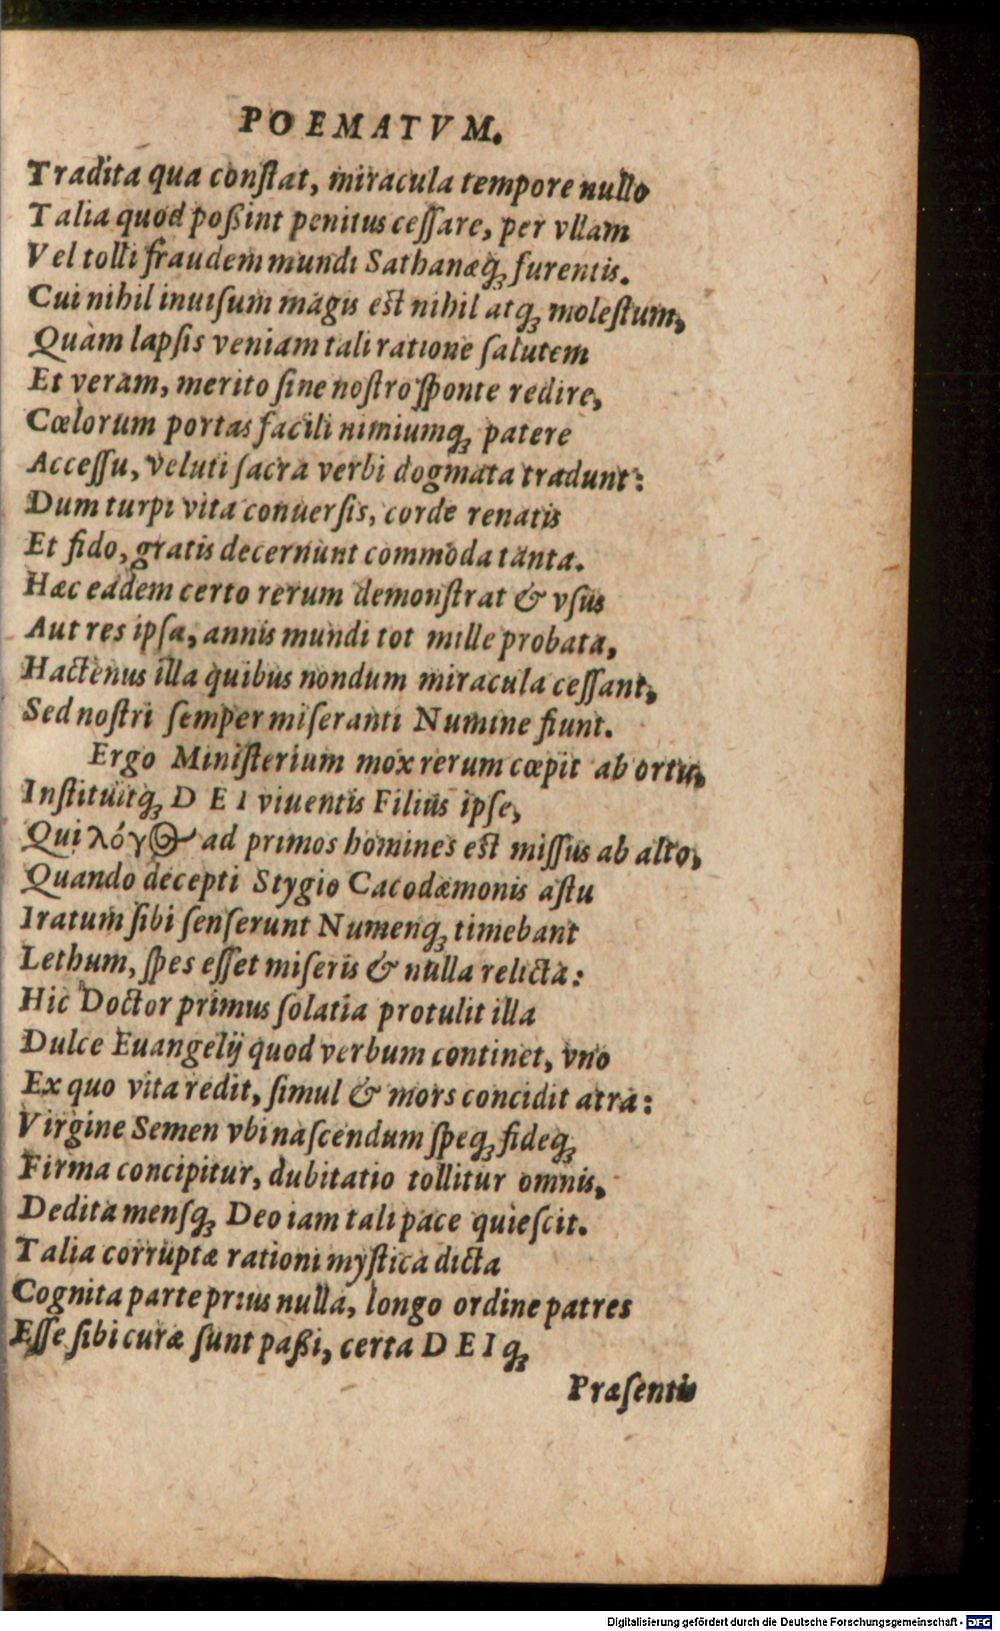 POEMATVM.
Tradita qua conſtat, miracula tempore nullo
Talia quod poßint penitus ceſſare, per vllam
Vel tolli fraudem mundi Sathanæq́; furentis.
Cui nihil inuiſum magis est nihil atq́; moleſtum,
Quàm lapſis veniam tali ratione ſalutem
Et veram, merito ſine noſtro ſponte redire,
Cœlorum portas facili nimiumq́; patere
Acceſſu, veluti ſacra verbi dogmata tradunt:
Dum turpi vita conuerſis, corde renatis
Et fido, gratis decernunt commoda tanta.
Hæc eadem certo rerum demonſtrat & vſus
Aut res ipſa, annis mundi tot mille probata,
Hactenus illa quibus nondum miracula ceſſant,
Sed noſtri ſemper miſeranti Numine fiunt.
Ergo Miniſterium mox rerum cœpit ab ortu,
Inſtituitq́; DEI viuentis Filius ipſe,
Qui λόγος ad primos homines est miſſus ab alto,
Quando decepti Stygio Cacodæmonis aſtu
Iratum ſibi ſenſerunt Numenq́; timebant
Lethum, ſpes eſſet miſeris & nulla relicta:
Hic Doctor primus ſolatia protulit illa
Dulce Euangelij quod verbum continet, vno
Ex quo vita redit, ſimul & mors concidit atra:
Virgine Semen vbi naſcendum ſpeq́; fideq́;
Firma concipitur, dubitatio tollitur omnis,
Dedita menſq́; Deo iam tali pace quieſcit.
Talia corruptæ rationi myſtica dicta
Cognita parte prius nulla, longo ordine patres
Eſſe ſibi curæ ſunt paßi, certa DEIq́;
Præſentis
Digitalisierung gefördert durch die Deutsche Forschungsgemeinschaft - DFG